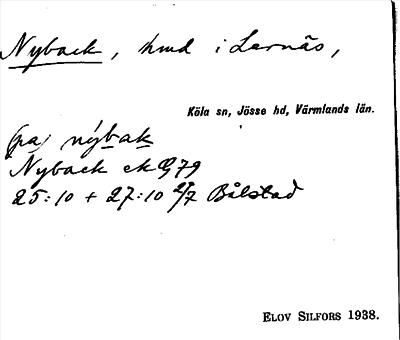 Nyback, hmd i Lernäs,
Köla sn, Jösse hd, Värmlands län.
(pa) nýbak
Nyback ek G79
25:10 + 27:10 2/7 Bålstad
ELOV SILFORS 1938.